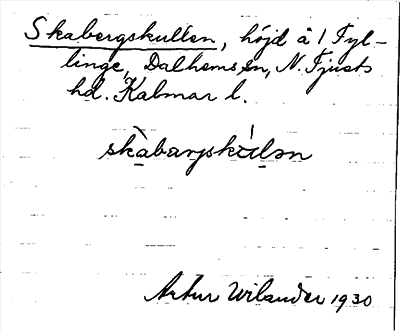 Skabergskullen, höjd å 1 Fyl-
linge, Dalhems sn, N. Tjusts
hd. Kalmar l.
skàbarjskúlən
Artur Wilander 1930